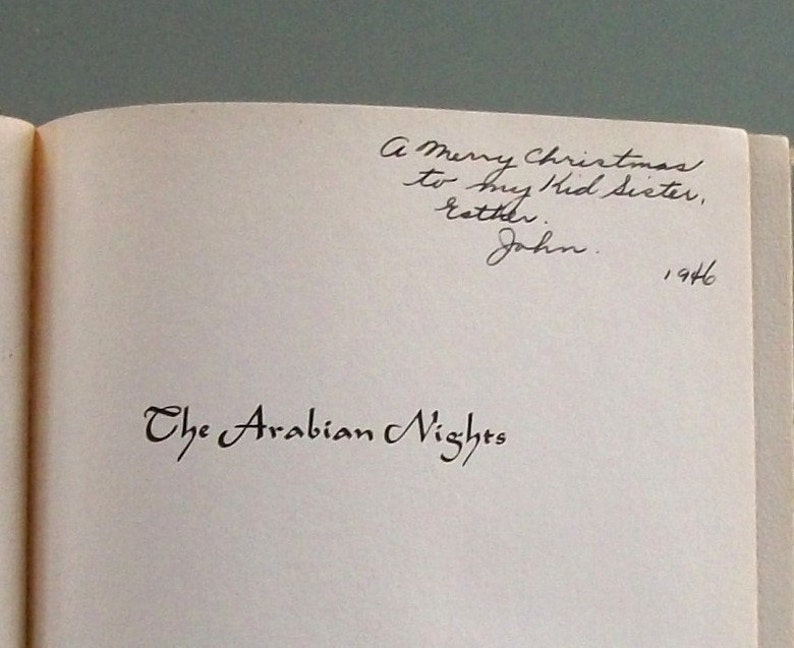 A Merry Christmas
to my Kid Sister,
Esther.
John.
1946
The Arabian Nights